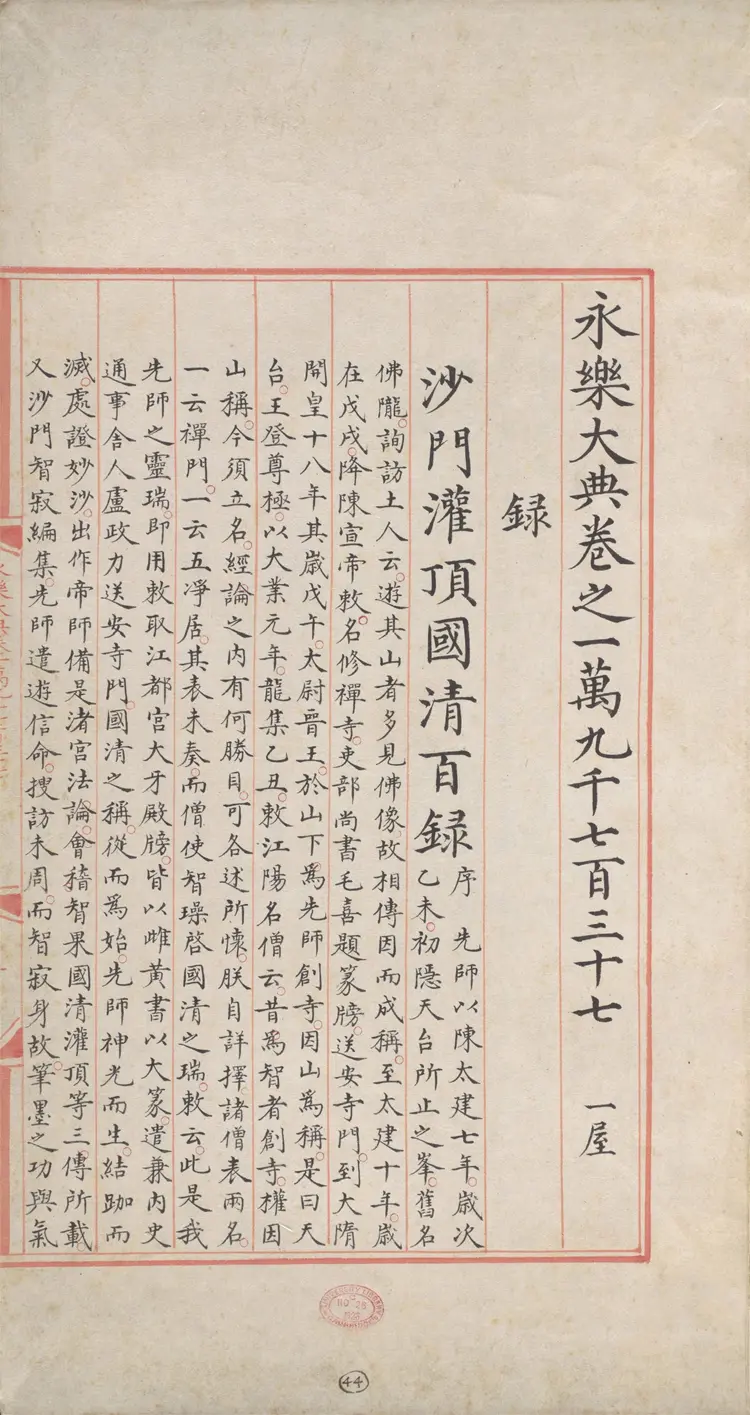 永樂大典卷之一萬九千七百三十七 一屋
録
沙門灌頂國清百録
序 先師以陳太建七年。歲次
乙未。初隱天台所止之峯。舊名
佛隴。詢訪土人云。遊其山者多見佛像。故相傳因而成稱。至太建十年。歲
在戊戌。降陳宣帝敕。名修禪寺。吏部尚書毛喜題篆牓。送安寺門。到大隋
開皇十八年其歲戊午。太尉晉王。於山下爲先師創寺。因山爲稱。是曰天
台。王登尊極。以大業元年。龍集乙丑。敕江陽名僧云。昔爲智者創寺。權因
山稱。今須立名。經論之内有何勝目。可各述所懷。朕自詳擇。諸僧表兩名。
一云禪門。一云五淨居。其表未奏。而僧使智璪啓國清之瑞。敕云。此是我
先師之靈瑞。即用敕取江都宮大牙殿牓。皆以雌黄書以大篆。遣兼内史
通事舍人盧政力送安寺門。國清之稱。從而爲始。先師神光而生。結跏而
滅。處證妙沙。出作帝師備是渚宮法論。會稽智果國清灌頂等三。傳所載。
又沙門智寂編集。先師遣遊信命。搜訪未周。而智寂身故。筆墨之功與氣
UNIVERSITY LIBRARY
44